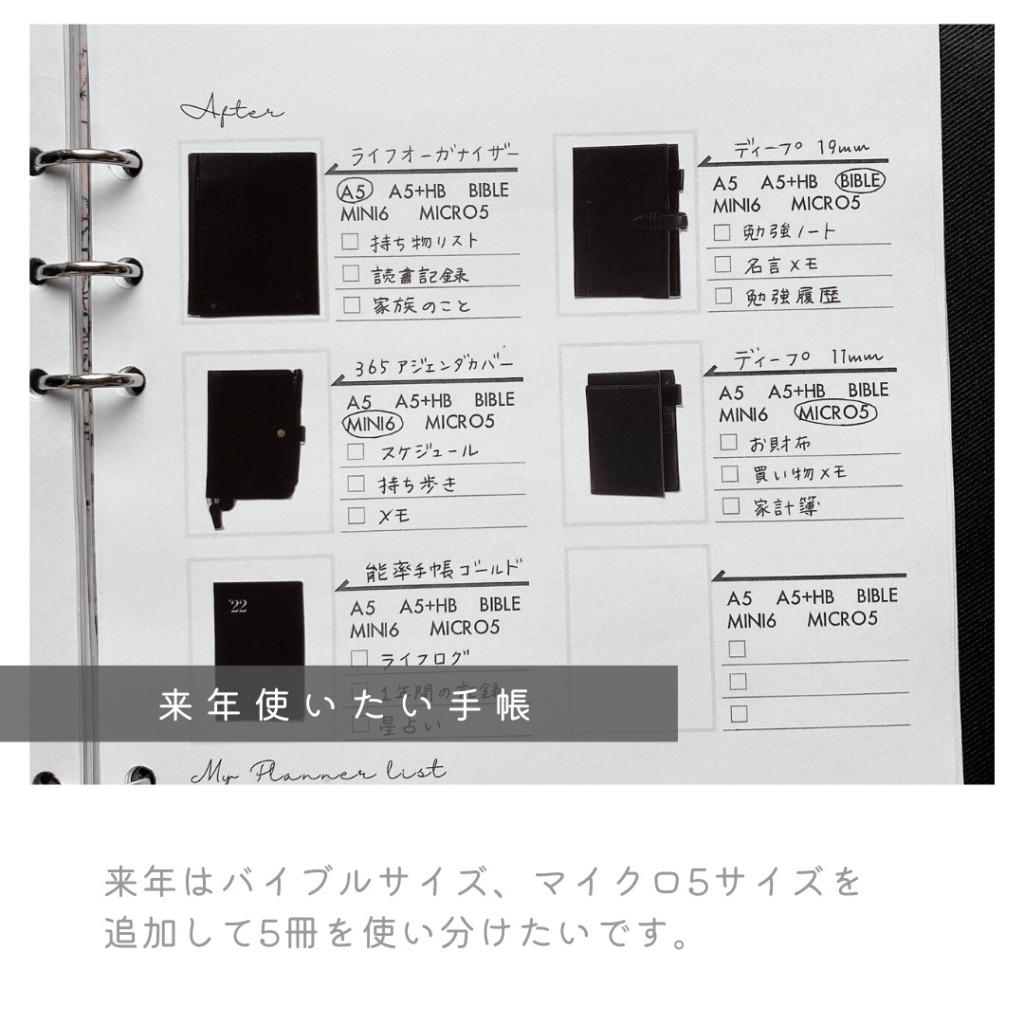 After
ライフオーガナイザー
A5 A5+HB BIBLE
MINI6 MICRO5
持ち物リスト
読書記録
家族のこと
ディープ 19mm
A5 A5+HB BIBLE
MINI6 MICRO5
勉強ノート
名言メモ
勉強履歴
365アジェンダカバー
A5 A5+HB BIBLE
MINI6 MICRO5
スケジュール
持ち歩き
メモ
ディープ 11mm
A5 A5+HB BIBLE
MINI6 MICRO5
お財布
買い物メモ
家計簿
'22
能率手帳ゴールド
A5 A5+HB BIBLE
MINI6 MICRO5
ライフログ
1年間の記録
星占い
A5 A5+HB BIBLE
MINI6 MICRO5
来年使いたい手帳
My Planner list
来年はバイブルサイズ、マイクロ5サイズを
追加して5冊を使い分けたいです。